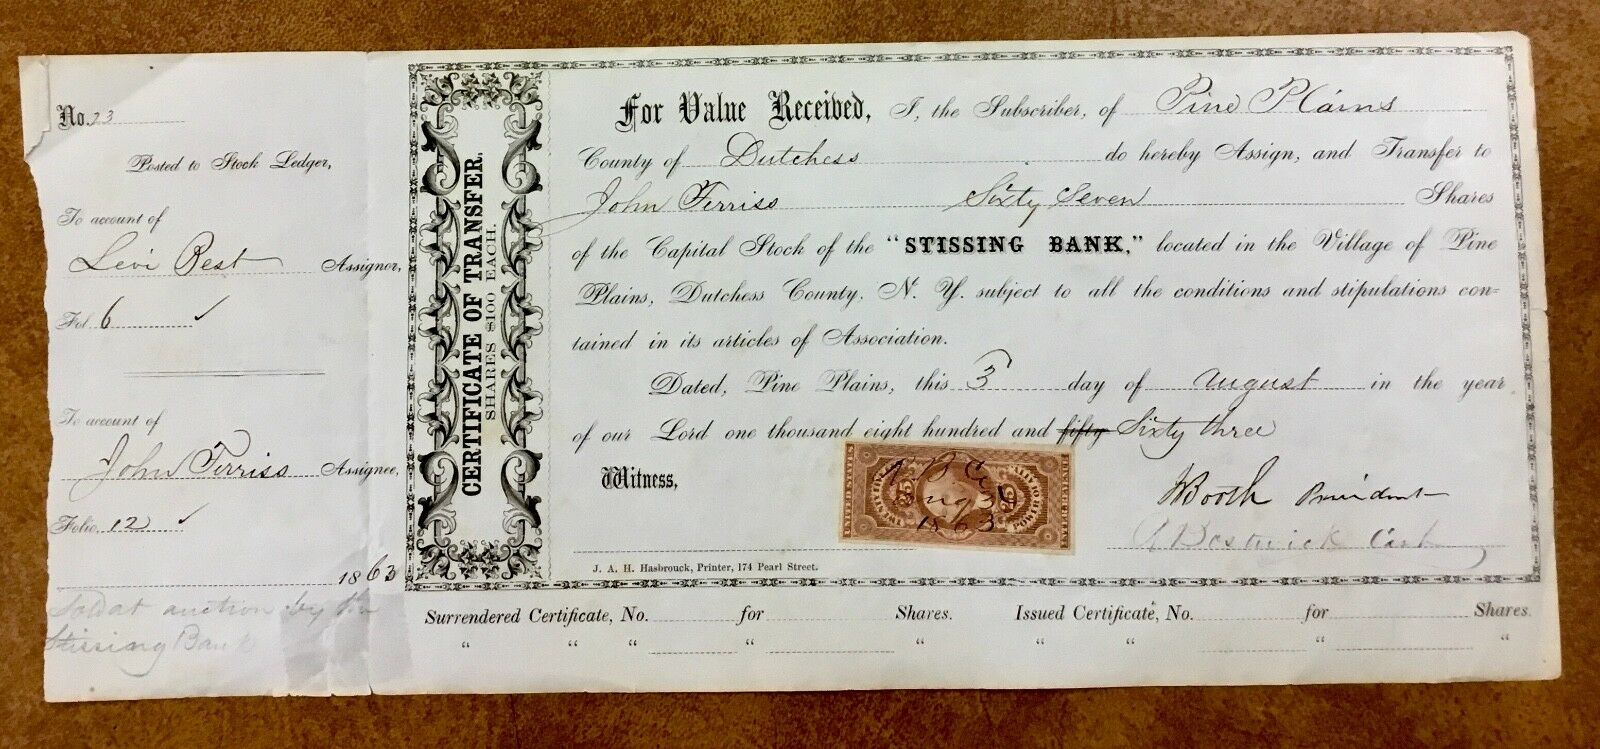 No. 73
Posted to Stock Ledger,
To account of
Levi Best Assignor,
Fol. 6 ✓
To account of
John Ferriss Assignee,
Folio. 12 ✓
1863
Sold at auction by the
Stissing Bank
CERTIFICATE OF TRANSFER.
SHARES $100 EACH.
For Value Received, I, the Subscriber, of Pine Plains
County of Dutchess do hereby Assign, and Transfer to
John Ferriss Sixty Seven Shares
of the Capital Stock of the "STISSING BANK," located in the Village of Pine
Plains, Dutchess County, N. Y. subject to all the conditions and stipulations con=
tained in its articles of Association.
Dated, Pine Plains, this 3 day of August in the year
of our Lord one thousand eight hundred and fifty Sixty three
Witness,
UNITED STATES
25 25
TWENTY FIVE
POWER OF ATT'Y
Aug 3
1863
Booth President
Bostwick Cash
J. A. H. Hasbrouck, Printer, 174 Pearl Street.
Surrendered Certificate, No. for Shares. Issued Certificate, No. for Shares.
" " " " " " " " "